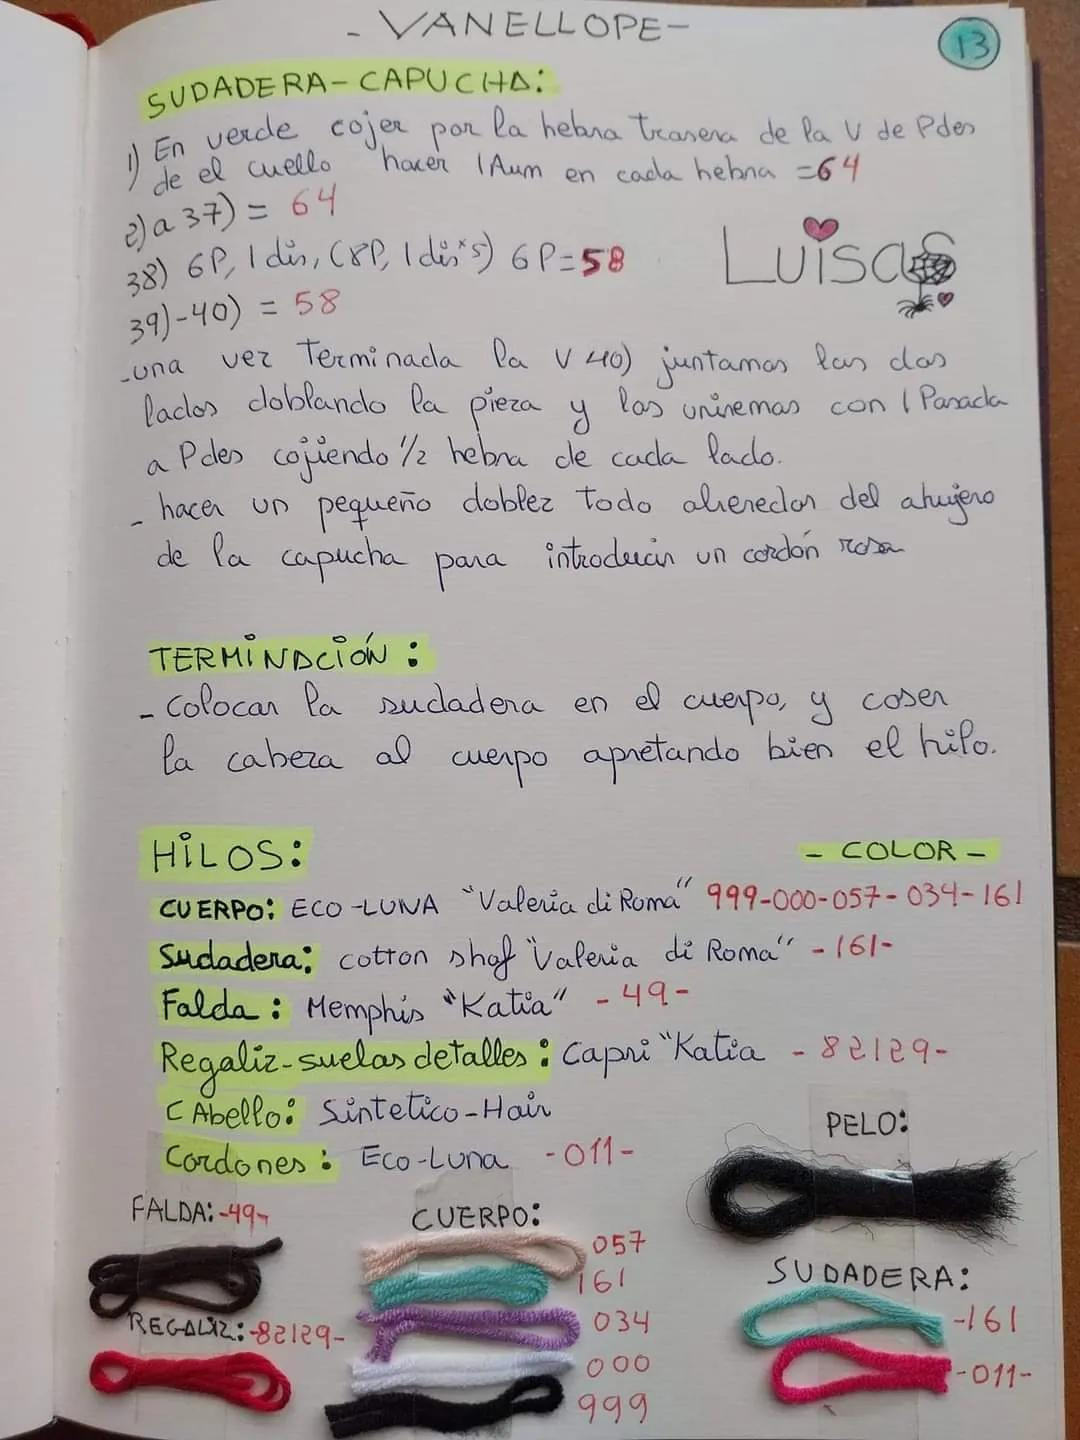 - VANELLOPE-
13
SUDADERA-CAPUCHA:
1) En verde cojer por la hebra trasera de la V de Pdes
de el cuello hacer 1 Aum en cada hebra =64
2) a 37) = 64
38) 6P, 1 dis, (8P, 1 dis*5) 6P=58
LUiSAS
39)-40) = 58
-una vez Terminada la V 40) juntamos los dos
lados doblando la pieza y los uniremos con 1 Pasada
a Pdes cojiendo 1/2 hebra de cada lado.
- hacer un pequeño doblez todo alrededor del ahujero
de la capucha para introducir un cordón rosa
TERMINACIÓN:
- Colocar la sudadera en el cuerpo, y coser
la cabeza al cuerpo apretando bien el hilo.
HILOS:
- COLOR -
CUERPO: ECO-LUNA "Valeria di Roma" 999-000-057-034-161
Sudadera: cotton shaf "Valeria di Roma" -161-
Falda: Memphis "Katia" -49-
Regaliz-suelas detalles: Capri "Katia -82129-
CAbello: Sintetico-Hair
Cordones: Eco-Luna -011-
PELO:
FALDA:-49-
CUERPO:
057
161
034
000
999
SUDADERA:
-161
-011-
REGALIZ:-82129-